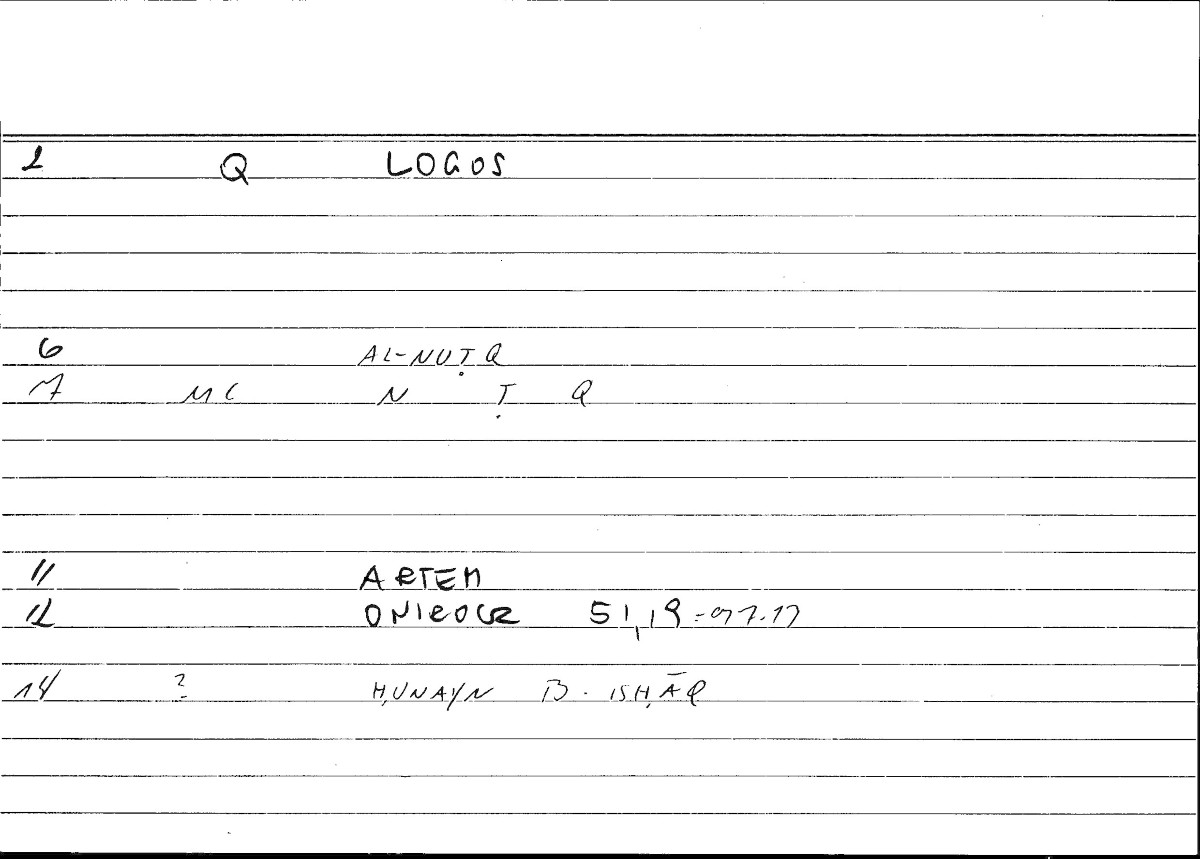 1 Q LOGOS
6 AL-NUṬQ
7 MC N Ṭ Q
11 ARTEM
12 ONIROCR 51,19 = 97.17
14 ? ḤUNAYN B. ISḤĀQ